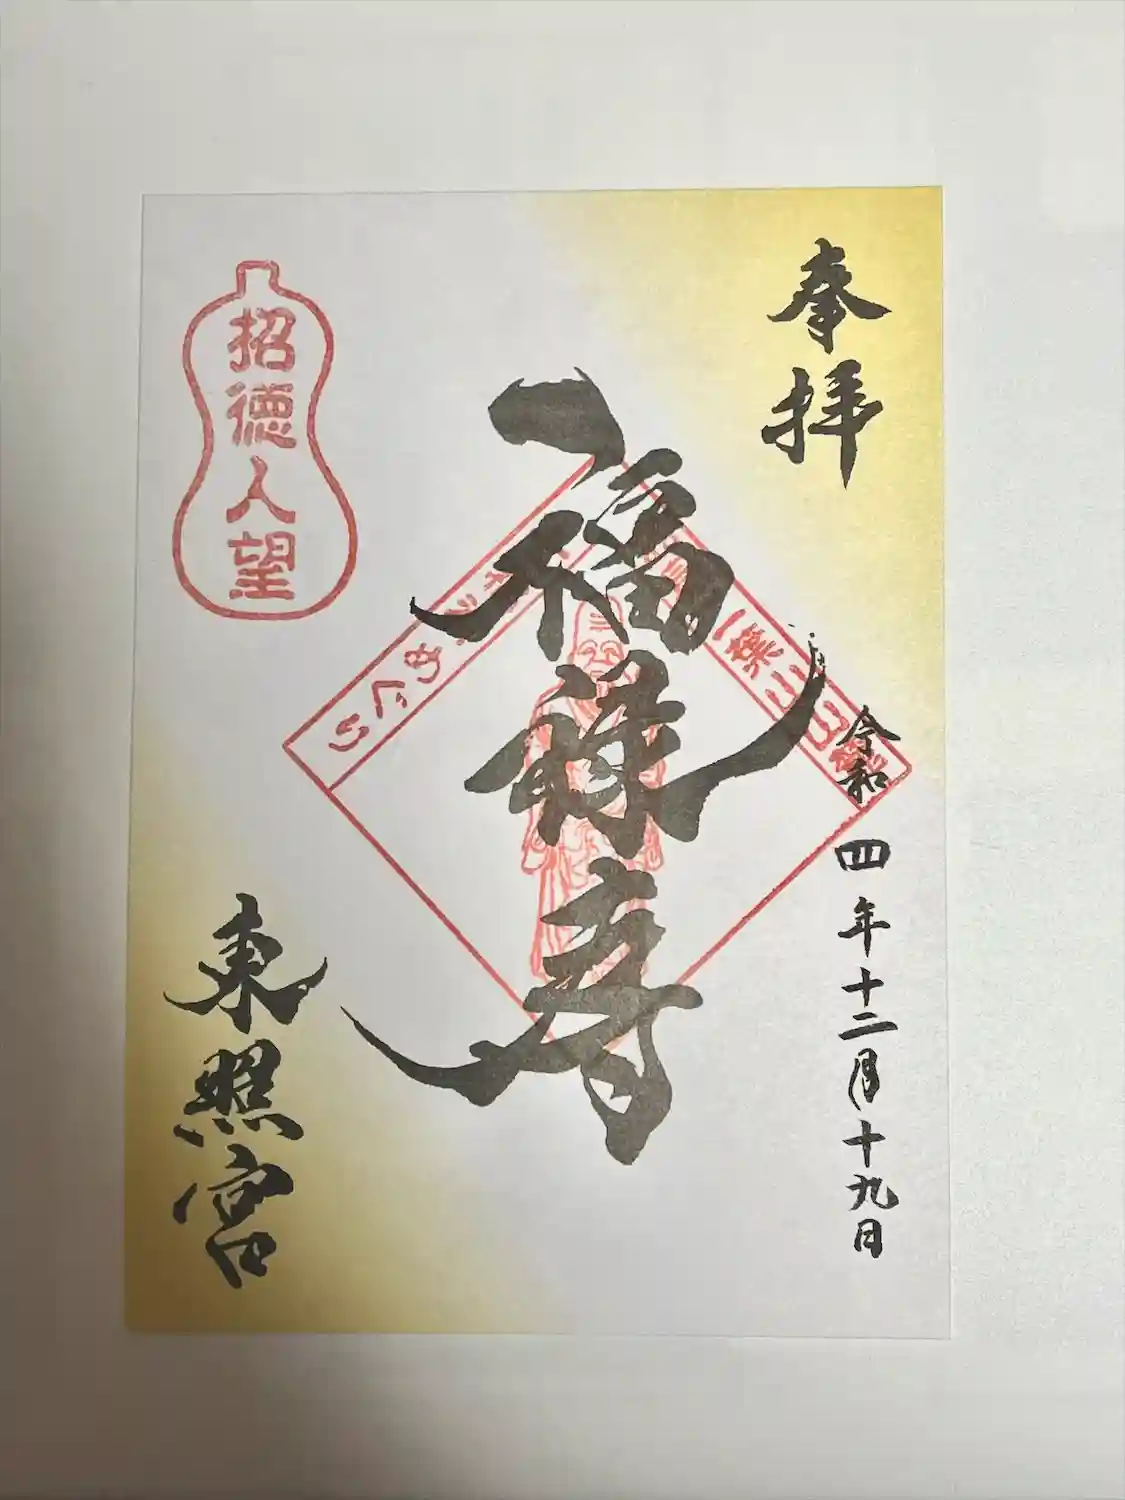 奉拝
令和四年十二月十九日
福禄寿
招徳人望
東照宮